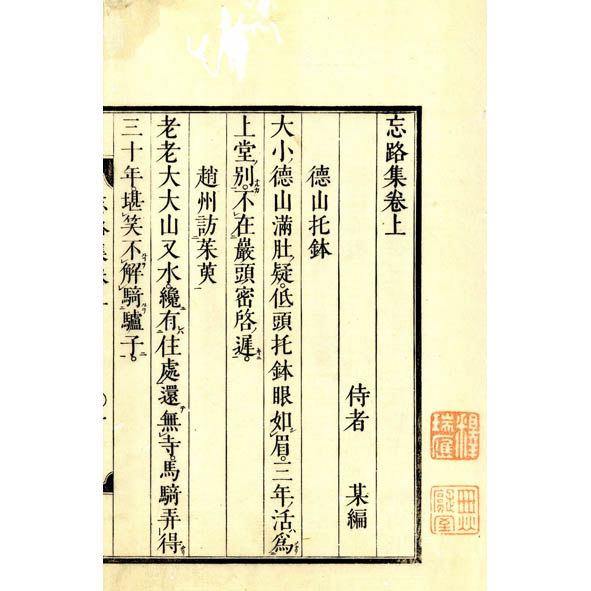 忘路集卷上
侍者　某編
德山托鉢
大小德山滿肚疑。低頭托鉢眼如眉。三年活爲
上堂別。不在巖頭密啓遲。
趙州訪茱萸
老老大大山又水。纔有住處還無寺。馬騎弄得
三十年。堪笑不解騎驢子。